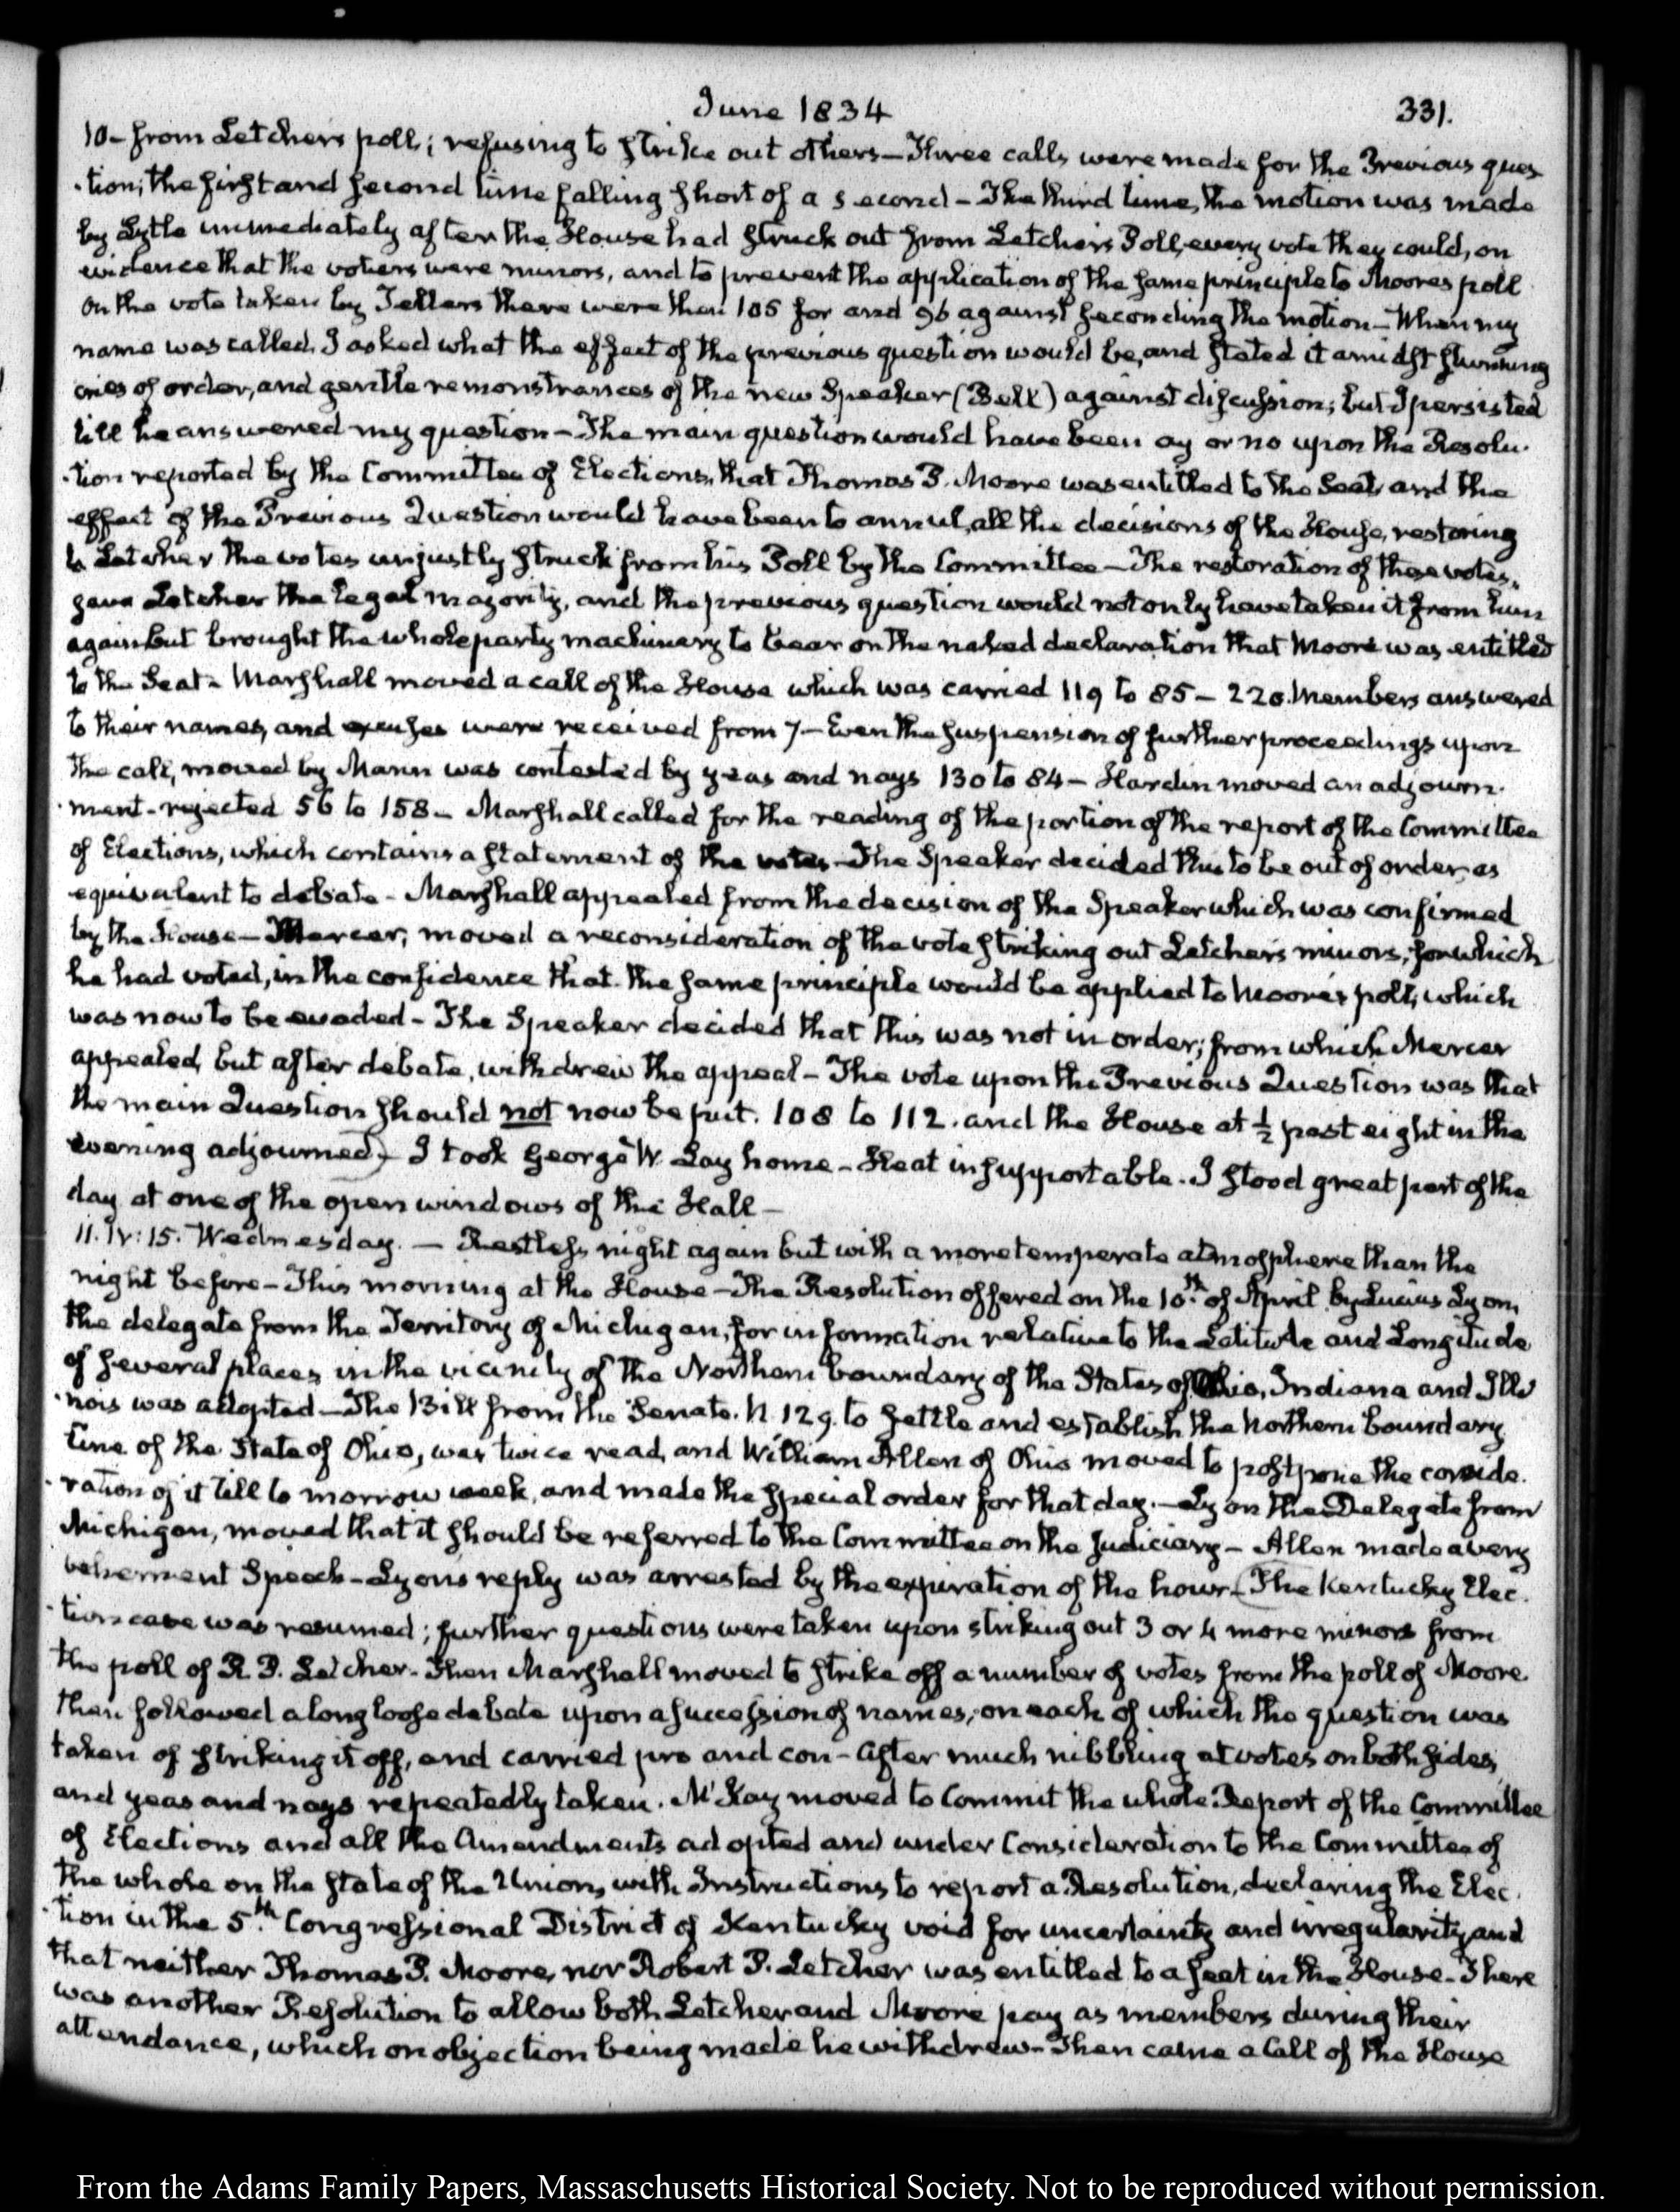 June 1834
331.
10 – from Letchers poll; refusing to strike out others – Three calls were made for the Previous ques
-tion; the first and second time falling short of a second – The third time, the motion was made
by Lytle immediately after the House had struck out from Letchers Poll, every vote they could, on
evidence that the voters were minors, and to prevent the application of the same principle to Moores poll
On the vote taken by Tellers there were then 105 for and 96 against seconding the motion – When my
name was called, I asked what the effect of the previous question would be, and stated it amidst stunning
cries of order, and gentle remonstrances of the new Speaker (Bell) against discussion; but I persisted
till he answered my question – The main question would have been ay or no upon the Resolu-
-tion reported by the Committee of Elections, that Thomas P. Moore was entitled to the Seat, and the
effect of the Previous Question would have been to annul, all the decisions of the House, restoring
to Letcher the votes unjustly struck from his Poll by the Committee – The restoration of these votes,
gave Letcher the legal majority, and the previous question would not only have taken it from him
again but brought the whole party machinery to bear on the naked declaration that Moore was entitled
to the Seat – Marshall moved a call of the House which was carried 119 to 85 – 220. Members answered
to their names, and excuses were received from 7 – Even the suspension of further proceedings upon
the call, moved by Mann was contested by yeas and nays 130 to 84 – Hardin moved an adjourn-
-ment – rejected 56 to 158 – Marshall called for the reading of the portion of the report of the Committee
of Elections, which contains a statement of the votes – The Speaker decided this to be out of order, as
equivalent to debate – Marshall appealed from the decision of the Speaker which was confirmed
by the House – Mercer, moved a reconsideration of the vote striking out Letchers minors, for which
he had voted, in the confidence that the same principle would be applied to Moore's poll, which
was now to be evaded – The Speaker decided that this was not in order; from which Mercer
appealed, but after debate, withdrew the appeal – The vote upon the Previous Question was that
the main Question should not now be put. 108 to 112. and the House at ½ past eight in the
evening adjourned) – I took George W. Lay home – Heat insupportable. I stood great part of the
day at one of the open windows of the Hall –
11. IV:15. Wednesday. – Restless night again but with a more temperate atmosphere than the
night before – This morning at the House – The Resolution offered on the 10th of April by Lucius Lyon,
the delegate from the Territory of Michigan, for information relative to the Latitude and Longitude
of several places in the vicinity of the Northern boundary of the States of Ohio, Indiana and Illi
-nois was adopted – The Bill from the Senate. N. 129. to settle and establish the Northern boundary
line of the State of Ohio, was twice read, and William Allen of Ohio moved to postpone the conside-
-ration of it till to morrow week, and made the special order for that day. – Lyon the Delegate from
Michigan, moved that it should be referred to the Committee on the Judiciary – Allen made a very
vehement Speech – Lyons reply was arrested by the expiration of the hour – (The Kentucky Elec-
-tion case was resumed; further questions were taken upon striking out 3 or 4 more minors from
the poll of R. P. Letcher – Then Marshall moved to strike off a number of votes from the poll of Moore.
then followed a long loose debate upon a succession of names, on each of which the question was
taken of striking it off, and carried pro and con – After much nibbling at votes on both sides,
and yeas and nays repeatedly taken. McKay moved to Commit the whole Report of the Committee
of Elections and all the Amendments adopted and under Consideration to the Committee of
the whole on the state of the Union, with Instructions to report a Resolution, declaring the Elec-
-tion in the 5th Congressional District of Kentucky void for uncertainty and irregularity, and
that neither Thomas P. Moore, nor Robert P. Letcher was entitled to a seat in the House – There
was another Resolution to allow both Letcher and Moore pay as members during their
attendance, which on objection being made he withdrew – Then came a Call of the House
From the Adams Family Papers, Massachusetts Historical Society. Not to be reproduced without permission.